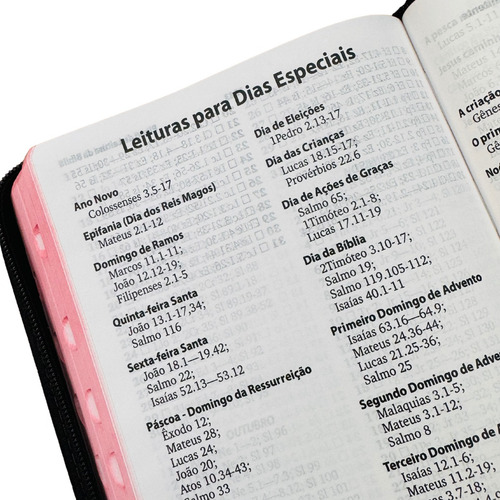 Leituras para Dias Especiais
Ano Novo
Colossenses 3.5-17
Epifania (Dia dos Reis Magos)
Mateus 2.1-12
Domingo de Ramos
Marcos 11.1-11;
João 12.12-19;
Filipenses 2.1-5
Quinta-feira Santa
João 13.1-17,34;
Salmo 116
Sexta-feira Santa
João 18.1—19.42;
Salmo 22;
Isaías 52.13—53.12
Páscoa - Domingo da Ressurreição
Êxodo 12;
Mateus 28;
Lucas 24;
João 20;
Atos 10.34-43;
Salmo 33
Dia de Eleições
1Pedro 2.13-17
Dia das Crianças
Lucas 18.15-17;
Provérbios 22.6
Dia de Ações de Graças
Salmo 65;
1Timóteo 2.1-8;
Lucas 17.11-19
Dia da Bíblia
2Timóteo 3.10-17;
Salmo 19;
Salmo 119.105-112;
Isaías 40.1-11
Primeiro Domingo de Advento
Isaías 63.16—64.9;
Mateus 24.36-44;
Lucas 21.25-36;
Salmo 25
Segundo Domingo de Advento
Malaquias 3.1-5;
Mateus 3.1-12;
Salmo 8
Terceiro Domingo de
Isaías 12.1-6;
Mateus 11.2-19;
A pesca
Lucas 5.1-11
Jesus
Mateus
Marcos
João
A criação
Gênes
O prim
Gê
No